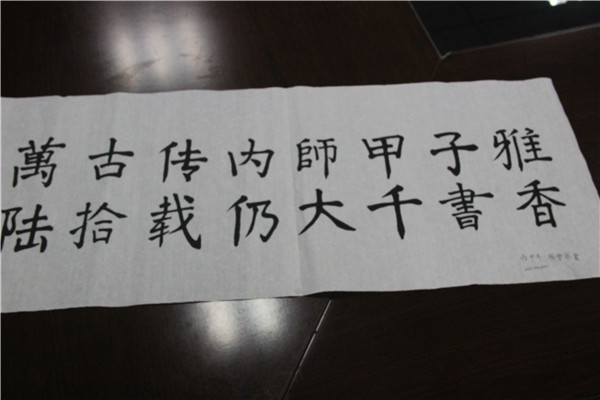 萬古传内師甲子雅
陆拾载仍大千書香